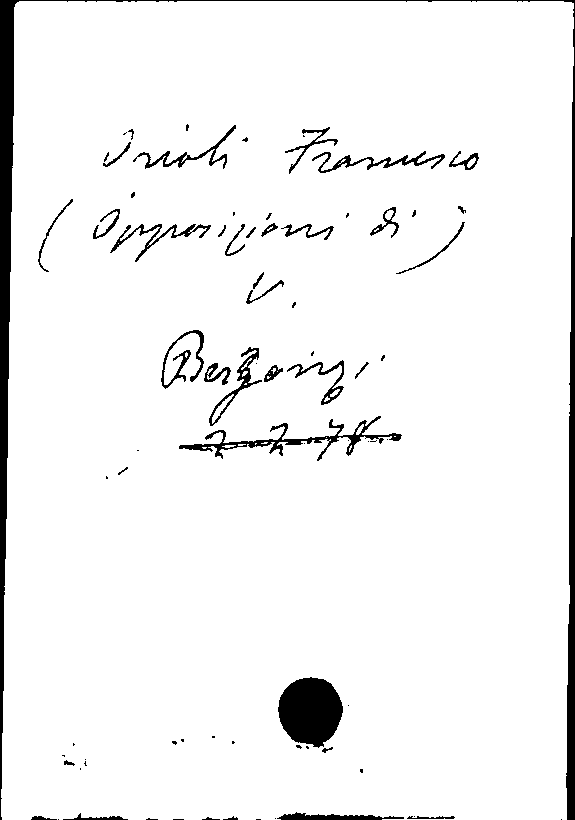 Orioli Francesco
(Opposizioni di)
V.
Bergonzi
2 2 78.